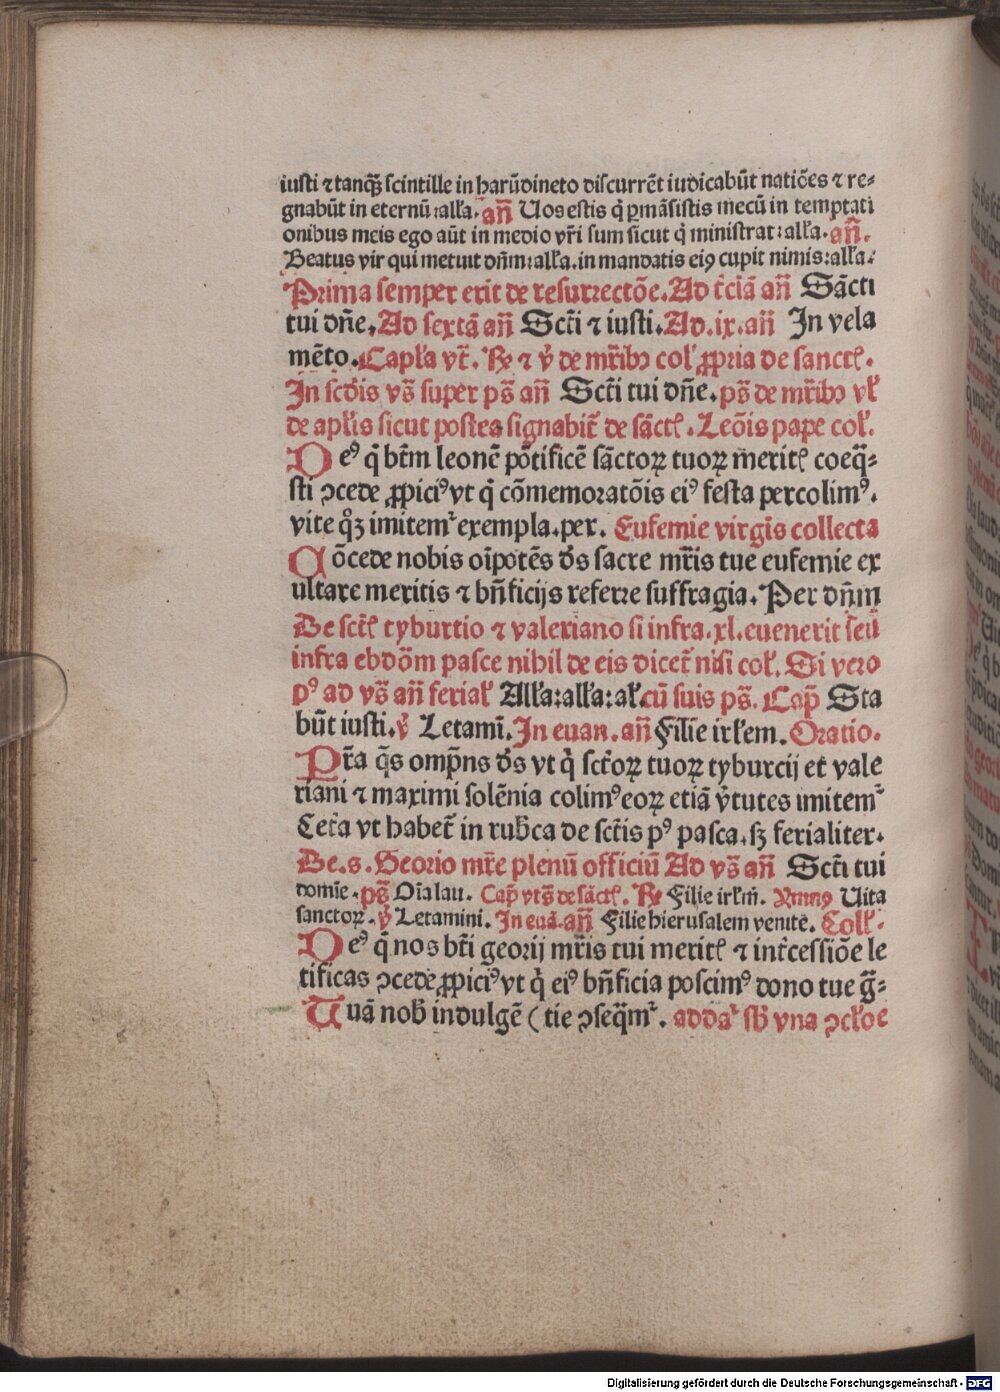 iusti ⁊ tanqꝫ̄ scintille in harūdineto discurrēt iudicabūt natiōes ⁊ re⸗
gnabūt in eternū:alľa. an̄ Uos estis q̇ ꝑmāsistis mecū in temptati
onibus meis ego aūt in medio vr̄i sum sicut q̇ ministrat:alľa. an̄.
Beatus vir qui metuit dn̄m:alľa. in mandatis eiꝰ cupit nimis:alľa:
Prima semper erit de resurrectōe. Ad tc̄iā an̄ Sācti
tui dn̄e. Ad sextā an̄ Scti̅ ⁊ iusti. Ad .ix. an̄ In vela
mēto. Capľa vt̄. ℞ ⁊ v̇ de mr̄ibꝫ col' ꝓpria de sanctꝭ.
In scd̄is vs̄ super ps̄ an̄ Scti̅ tui dn̄e. ps̄ de mr̄ibꝫ vľ
de apľis sicut postea signabit̄ de sāctꝭ. Leōis pape coľ.
Deꝰ q̇ bt̄m leonē pōtificē sāctoꝝ tuoꝝ meritꝭ coeq̄⸗
sti ꝯcede ꝓpiciꝰ vt q̇ cōmemoratōis eiꝰ festa percolimꝰ.
vite qͦꝫ imitem᷑ exempla. per. Eufemie virgīs collecta
Cōcede nobis oīpotēs ds̄ sacre mr̄is tue eufemie ex
ultare meritis ⁊ bn̄ficijs referre suffragia. Per dn̄m
De sctꝭ̄ tyburtio ⁊ valeriano si infra .xl. euenerit seu
infra ebdōm pasce nihil de eis dicet̄ nisi coľ. Si vero
pꝰ ad vs̄ an̄ feriaľ Alľa:alľa:aľ. cū suis ps̄. Cap̄ Sta
būt iusti. v̇ Letamī. In euan. an̄ Filie irľem. Oratio.
Pr̄a q̄s omp̄ns ds̄ vt q̇ sct̄oꝝ tuoꝝ tyburcij et vale
riani ⁊ maximi solēnia colimꝰ eoꝝ etiā v̇tutes imitem᷑
Cet̄a vt habet̄ in rub̄ca de sct̄is pꝰ pasca. sꝫ ferialiter.
De .s. Georio mr̄e plenū officiū Ad vs̄ an̄ Scti̅ tui
domīe. ps̄ Oīa lau. Cap̄ vts̄ de sāctꝭ. ℞ Filie irľm̄. Ymnꝰ Uita
sanctoꝝ. v̇ Letamini. In euā. an̄ Filie hierusalem venite. Colľ.
Deꝰ q̇ nos bt̄i georij mr̄is tui meritꝭ ⁊ int̄cessiōe le
tificas ꝯcede ꝓpiciꝰ vt q̇ eiꝰ bn̄ficia poscimꝰ dono tue gr̄⸗
Tuā nob̄ indulgē (tie ꝯseq̄m᷑. adda᷑ sb̄ vna ꝯcľoe
Digitalisierung gefördert durch die Deutsche Forschungsgemeinschaft - DFG